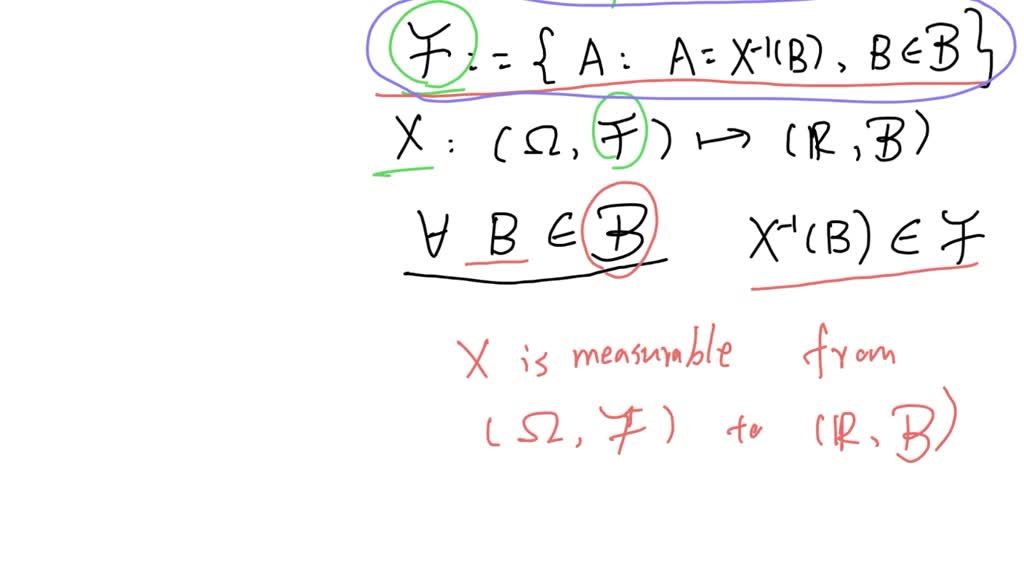 ℱ := { A : A = X⁻¹(B), B ∈ ℬ }
X : (Ω, ℱ) ↦ (ℝ, ℬ)
∀ B ∈ ℬ X⁻¹(B) ∈ ℱ
X is measurable from
(Ω, ℱ) to (ℝ, ℬ)